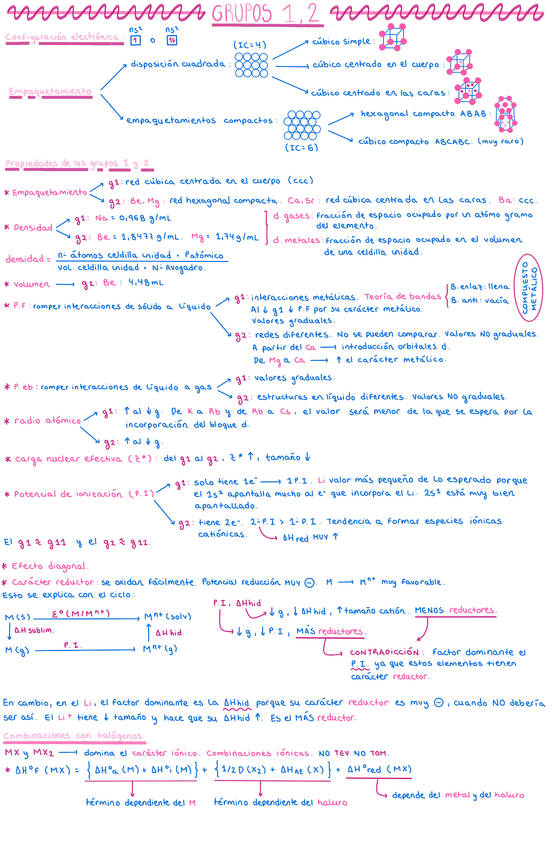 GRUPOS 1,2
Configuración electrónica:
ns¹ o ns²
Empaquetamiento
disposición cuadrada: (IC=4)
cúbico simple:
cúbico centrado en el cuerpo:
cúbico centrado en las caras:
empaquetamientos compactos: (IC=6)
hexagonal compacto ABAB:
cúbico compacto ABCABC. (muy raro)
Propiedades de los grupos 1 y 2
* Empaquetamiento
g1: red cúbica centrada en el cuerpo (ccc)
g2: Be, Mg: red hexagonal compacta. Ca, Sr: red cúbica centrada en las caras. Ba: ccc.
* Densidad
g1: Na = 0,968 g/mL
g2: Be = 1,8477 g/mL. Mg = 1,74 g/mL
d.gases: fracción de espacio ocupado por un átomo gramo
del elemento.
d.metales: fracción de espacio ocupado en el volumen
de una celdilla unidad.
densidad = nº átomos celdilla unidad · Patómico
vol. celdilla unidad · Nº Avogadro.
* volumen → g2: Be: 4,48 mL
* P.F: romper interacciones de sólido a líquido
g1: interacciones metálicas. Teoría de bandas
B.enlaz: llena
B.anti: vacía
COMPUESTO
METÁLICO
Al ↓ g1 ↓ P.F por su carácter metálico.
Valores graduales.
g2: redes diferentes. No se pueden comparar. Valores NO graduales.
A partir del Ca → introducción orbitales d.
De Mg a Ca → ↑ el carácter metálico.
* P.eb: romper interacciones de líquido a gas
g1: valores graduales.
g2: estructuras en líquido diferentes. Valores NO graduales.
* radio atómico
g1: ↑ al ↓ g. De K a Rb y de Rb a Cs, el valor será menor de la que se espera por la
incorporación del bloque d.
g2: ↑ al ↓ g.
* carga nuclear efectiva (Z*): del g1 al g2, Z* ↑, tamaño ↓
* Potencial de ionización (P.I)
g1: solo tiene 1e⁻ → 1P.I. Li valor más pequeño de lo esperado porque
el 1s² apantalla mucho al e⁻ que incorpora el Li. 2s¹ está muy bien
apantallado.
g2: tiene 2e⁻. 2º P.I > 1º P.I. Tendencia a formar especies iónicas
catiónicas. → ΔHred MUY ↑
El g1 ≈ g11 y el g2 ≈ g12.
* Efecto diagonal.
* Carácter reductor: se oxidan fácilmente. Potencial reducción MUY ⊖. M → Mⁿ⁺ muy favorable.
Esto se explica con el ciclo:
M(s) Eº(M/Mⁿ⁺) Mⁿ⁺(solv)
ΔH sublim. ΔH hid.
M(g) P.I. Mⁿ⁺(g)
P.I, ΔHhid
↓g, ↓ΔHhid, ↑tamaño catión. MENOS reductores.
↓g, ↓P.I, MÁS reductores.
CONTRADICCIÓN: Factor dominante el
P.I. ya que estos elementos tienen
carácter reductor.
En cambio, en el Li, el factor dominante es la ΔHhid porque su carácter reductor es muy ⊖, cuando NO debería
ser así. El Li⁺ tiene ↓ tamaño y hace que su ΔHhid ↑. Es el MÁS reductor.
Combinaciones con halógenos
MX y MX₂ → domina el carácter iónico. Combinaciones iónicas. NO TEV NO TOM.
* ΔHºF (MX) = {ΔHºa (M) + ΔHºi (M)} + {1/2 D (X₂) + ΔHAE (X)} + ΔHºred (MX)
término dependiente del M
término dependiente del haluro
depende del metal y del haluro